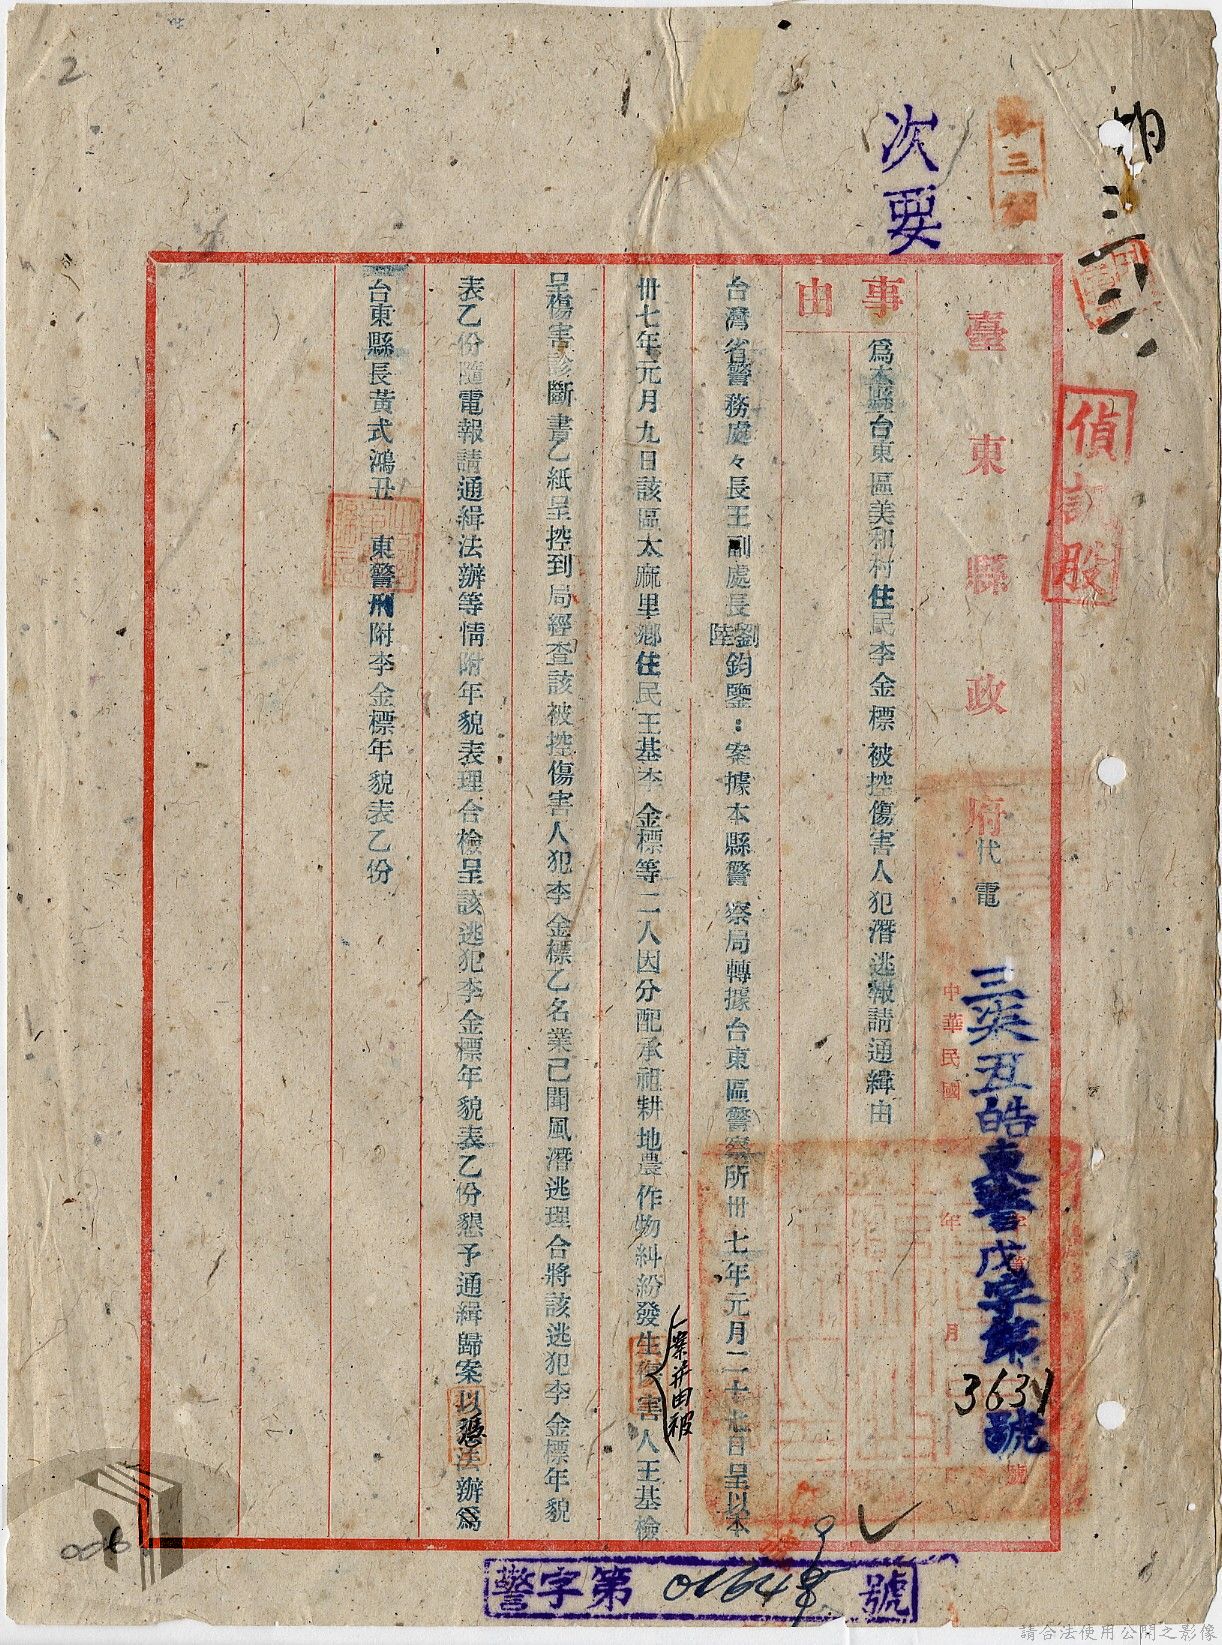 次要
偵訊股
臺東縣政府代電
中華民國 年 月
三柒丑皓東警戊字第3634號
事由
為本縣台東區美和村住民李金標被控傷害人犯潛逃報請通緝由
台灣省警務處々長王副處長劉陸鈞鑒：案據本縣警察局轉據台東區警察所卅七年元月二十七日呈以本
卅七年元月九日該區太麻里鄉住民王基李金標等二人因分配承租耕地農作物糾紛發生傷害一案并由被害人王基檢
呈傷害診斷書乙紙呈控到局經查該被控傷害人犯李金標乙名業已聞風潛逃理合將該逃犯李金標年貌
表乙份隨電報請通緝法辦等情附年貌表理合檢呈該逃犯李金標年貌表乙份懇予通緝歸案以憑法辦為
台東縣長黃式鴻丑 東警刑附李金標年貌表乙份
警字第 號
006
2
請合法使用公開之影像